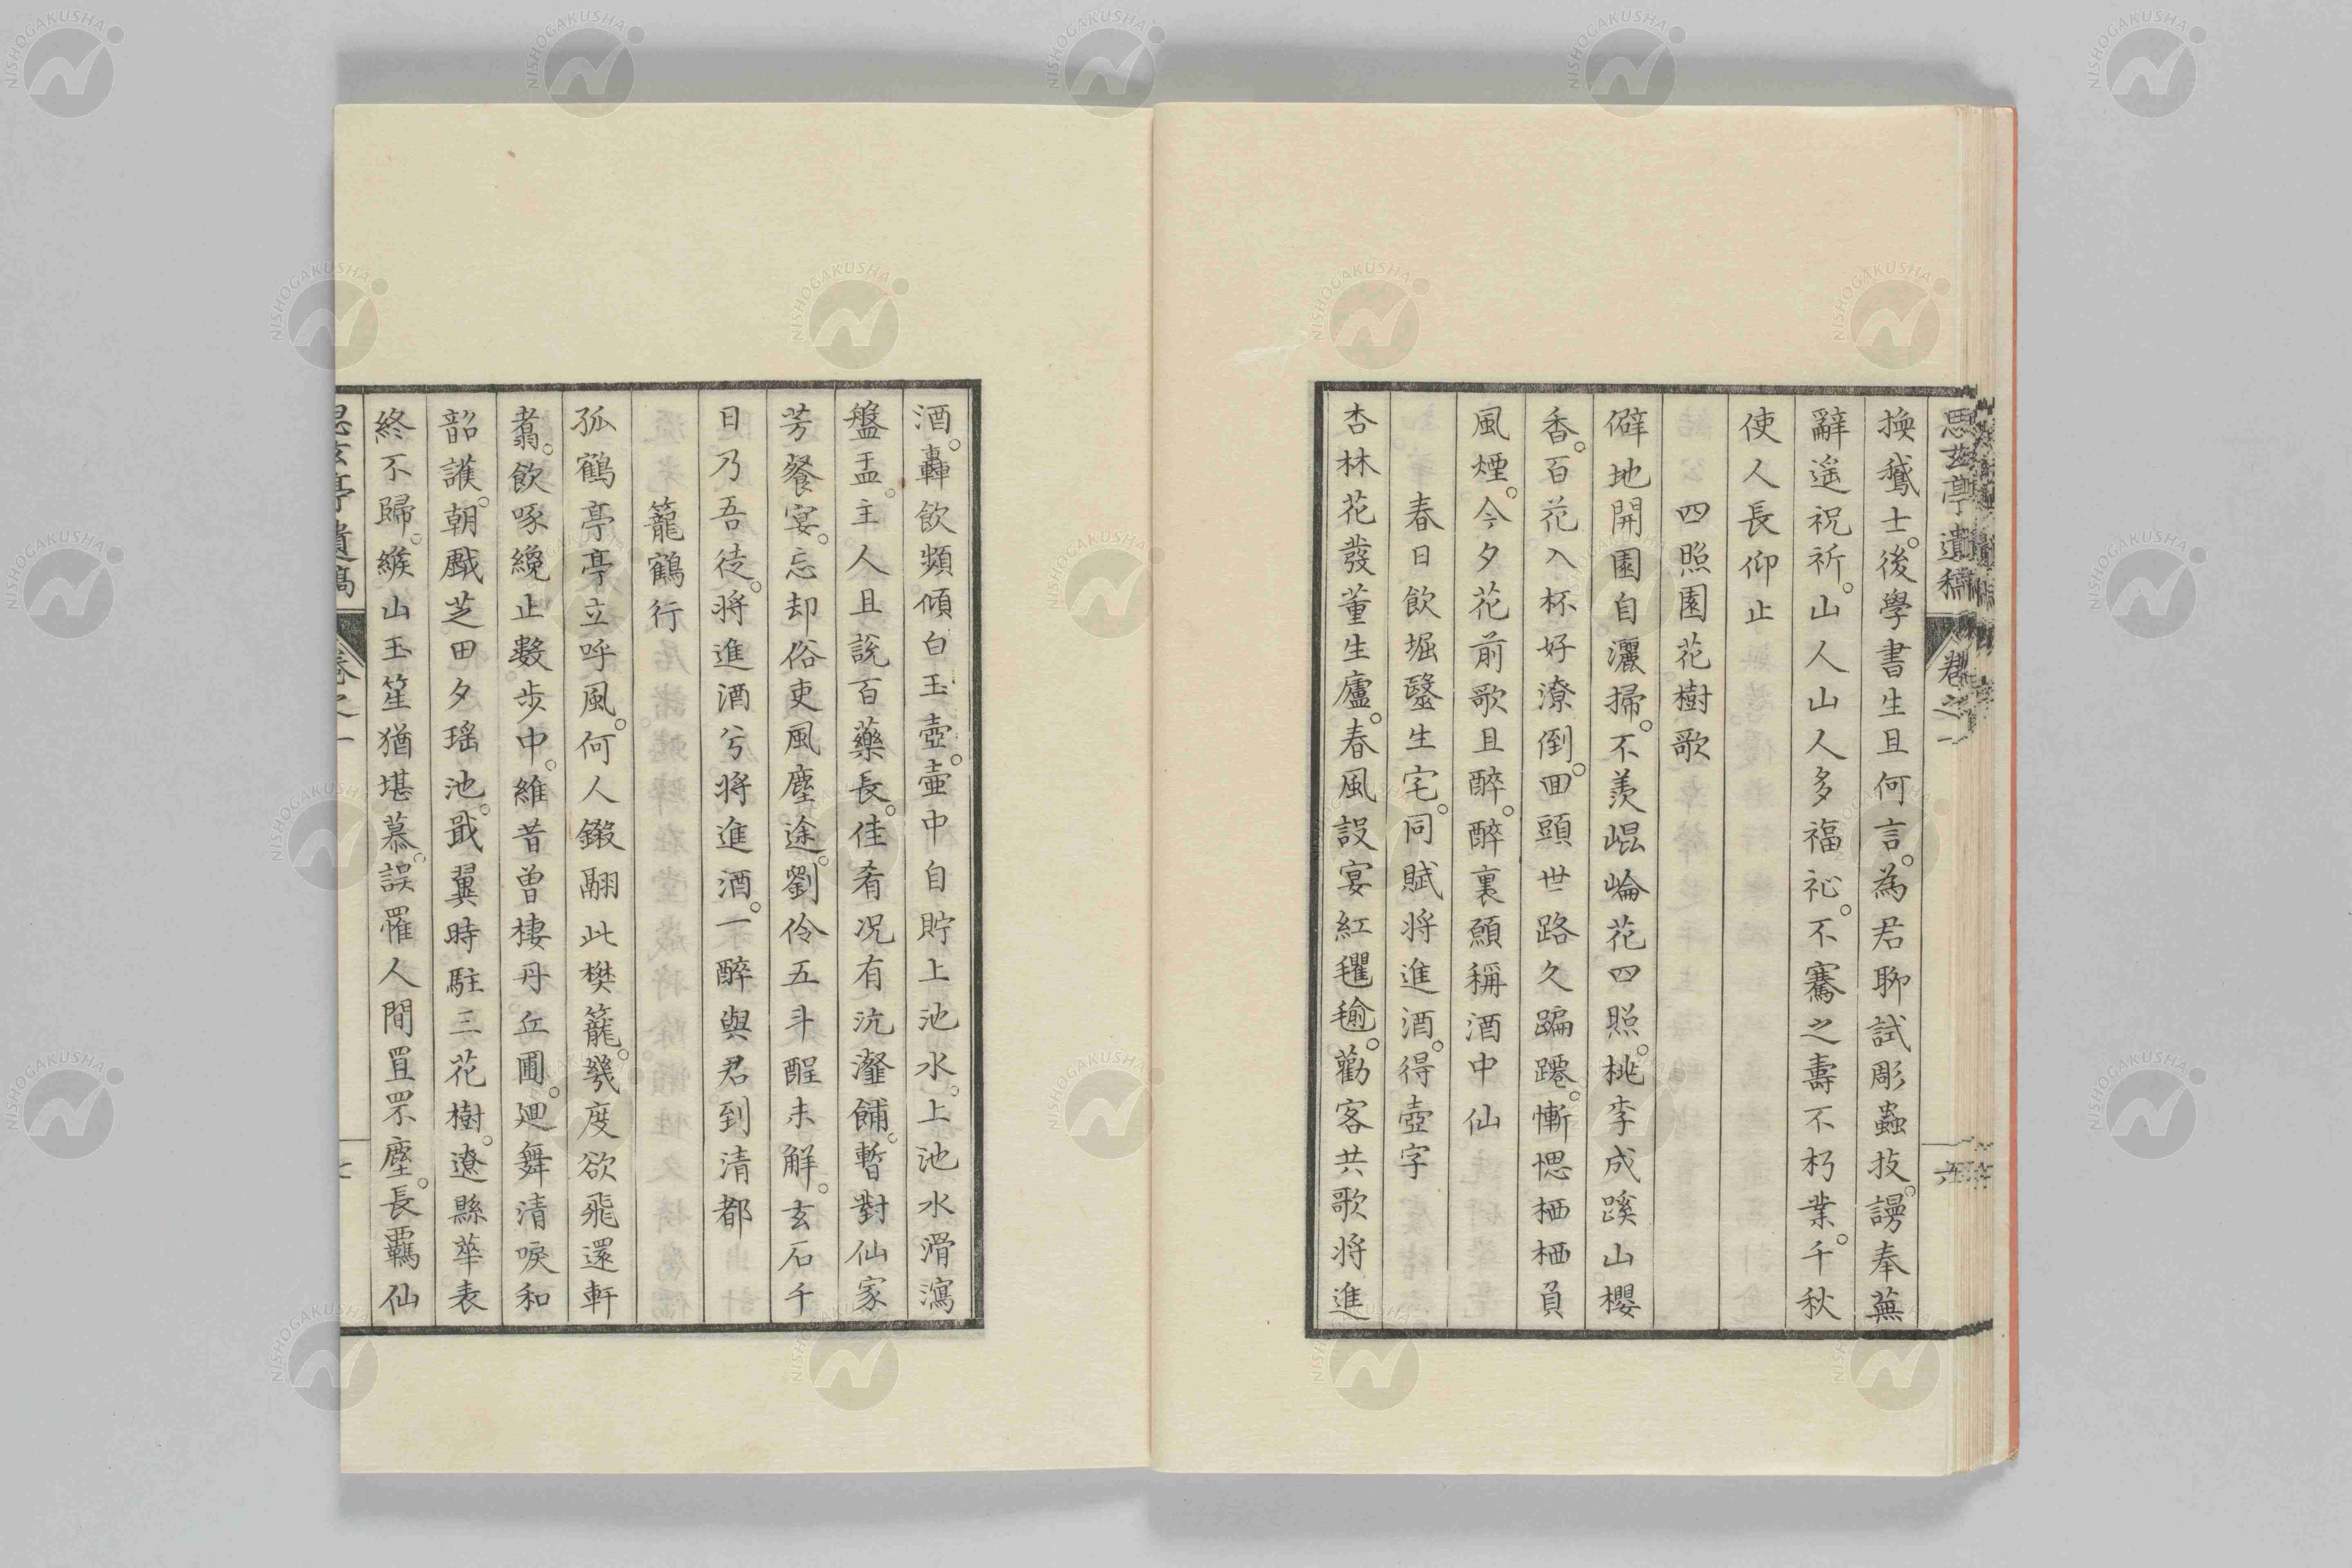 思玄亭遺稿 卷之一 六
換鵞士。後學書生且何言。為君聊試彫蟲技。謾奉蕪
辭遥祝祈。山人山人多福祉。不騫之壽不朽業。千秋
使人長仰止
四照園花樹歌
僻地開園自灑掃。不羨崐崘花四照。桃李成蹊山櫻
香。百花入杯好潦倒。回頭世路久蹁蹮。慚愢栖栖負
風煙。今夕花前歌且醉。醉裏願稱酒中仙
春日飲堀毉生宅。同賦将進酒。得壺字
杏林花發董生廬。春風設宴紅氍毹。勸客共歌将進
酒。轟飲頻傾白玉壺。壷中自貯上池水。上池水滑瀉
盤盂。主人且說百藥長。佳肴况有沆瀣餔。暫對仙家
芳餐宴。忘却俗吏風塵途。劉伶五斗酲未解。玄石千
日乃吾徒。将進酒兮将進酒。一醉與君到清都
籠鶴行
孤鶴亭亭立呼風。何人鎩翮此樊籠。幾度欲飛還軒
翥。飲啄纔止數步中。維昔曾棲丹丘圃。廻舞清唳和
韶頀。朝戲芝田夕瑶池。戢翼時駐三花樹。遼縣華表
終不歸。緱山玉笙猶堪慕。誤罹人間罝罘塵。長羈仙
思玄亭遺稿 卷之一 七
NISHOGAKUSHA